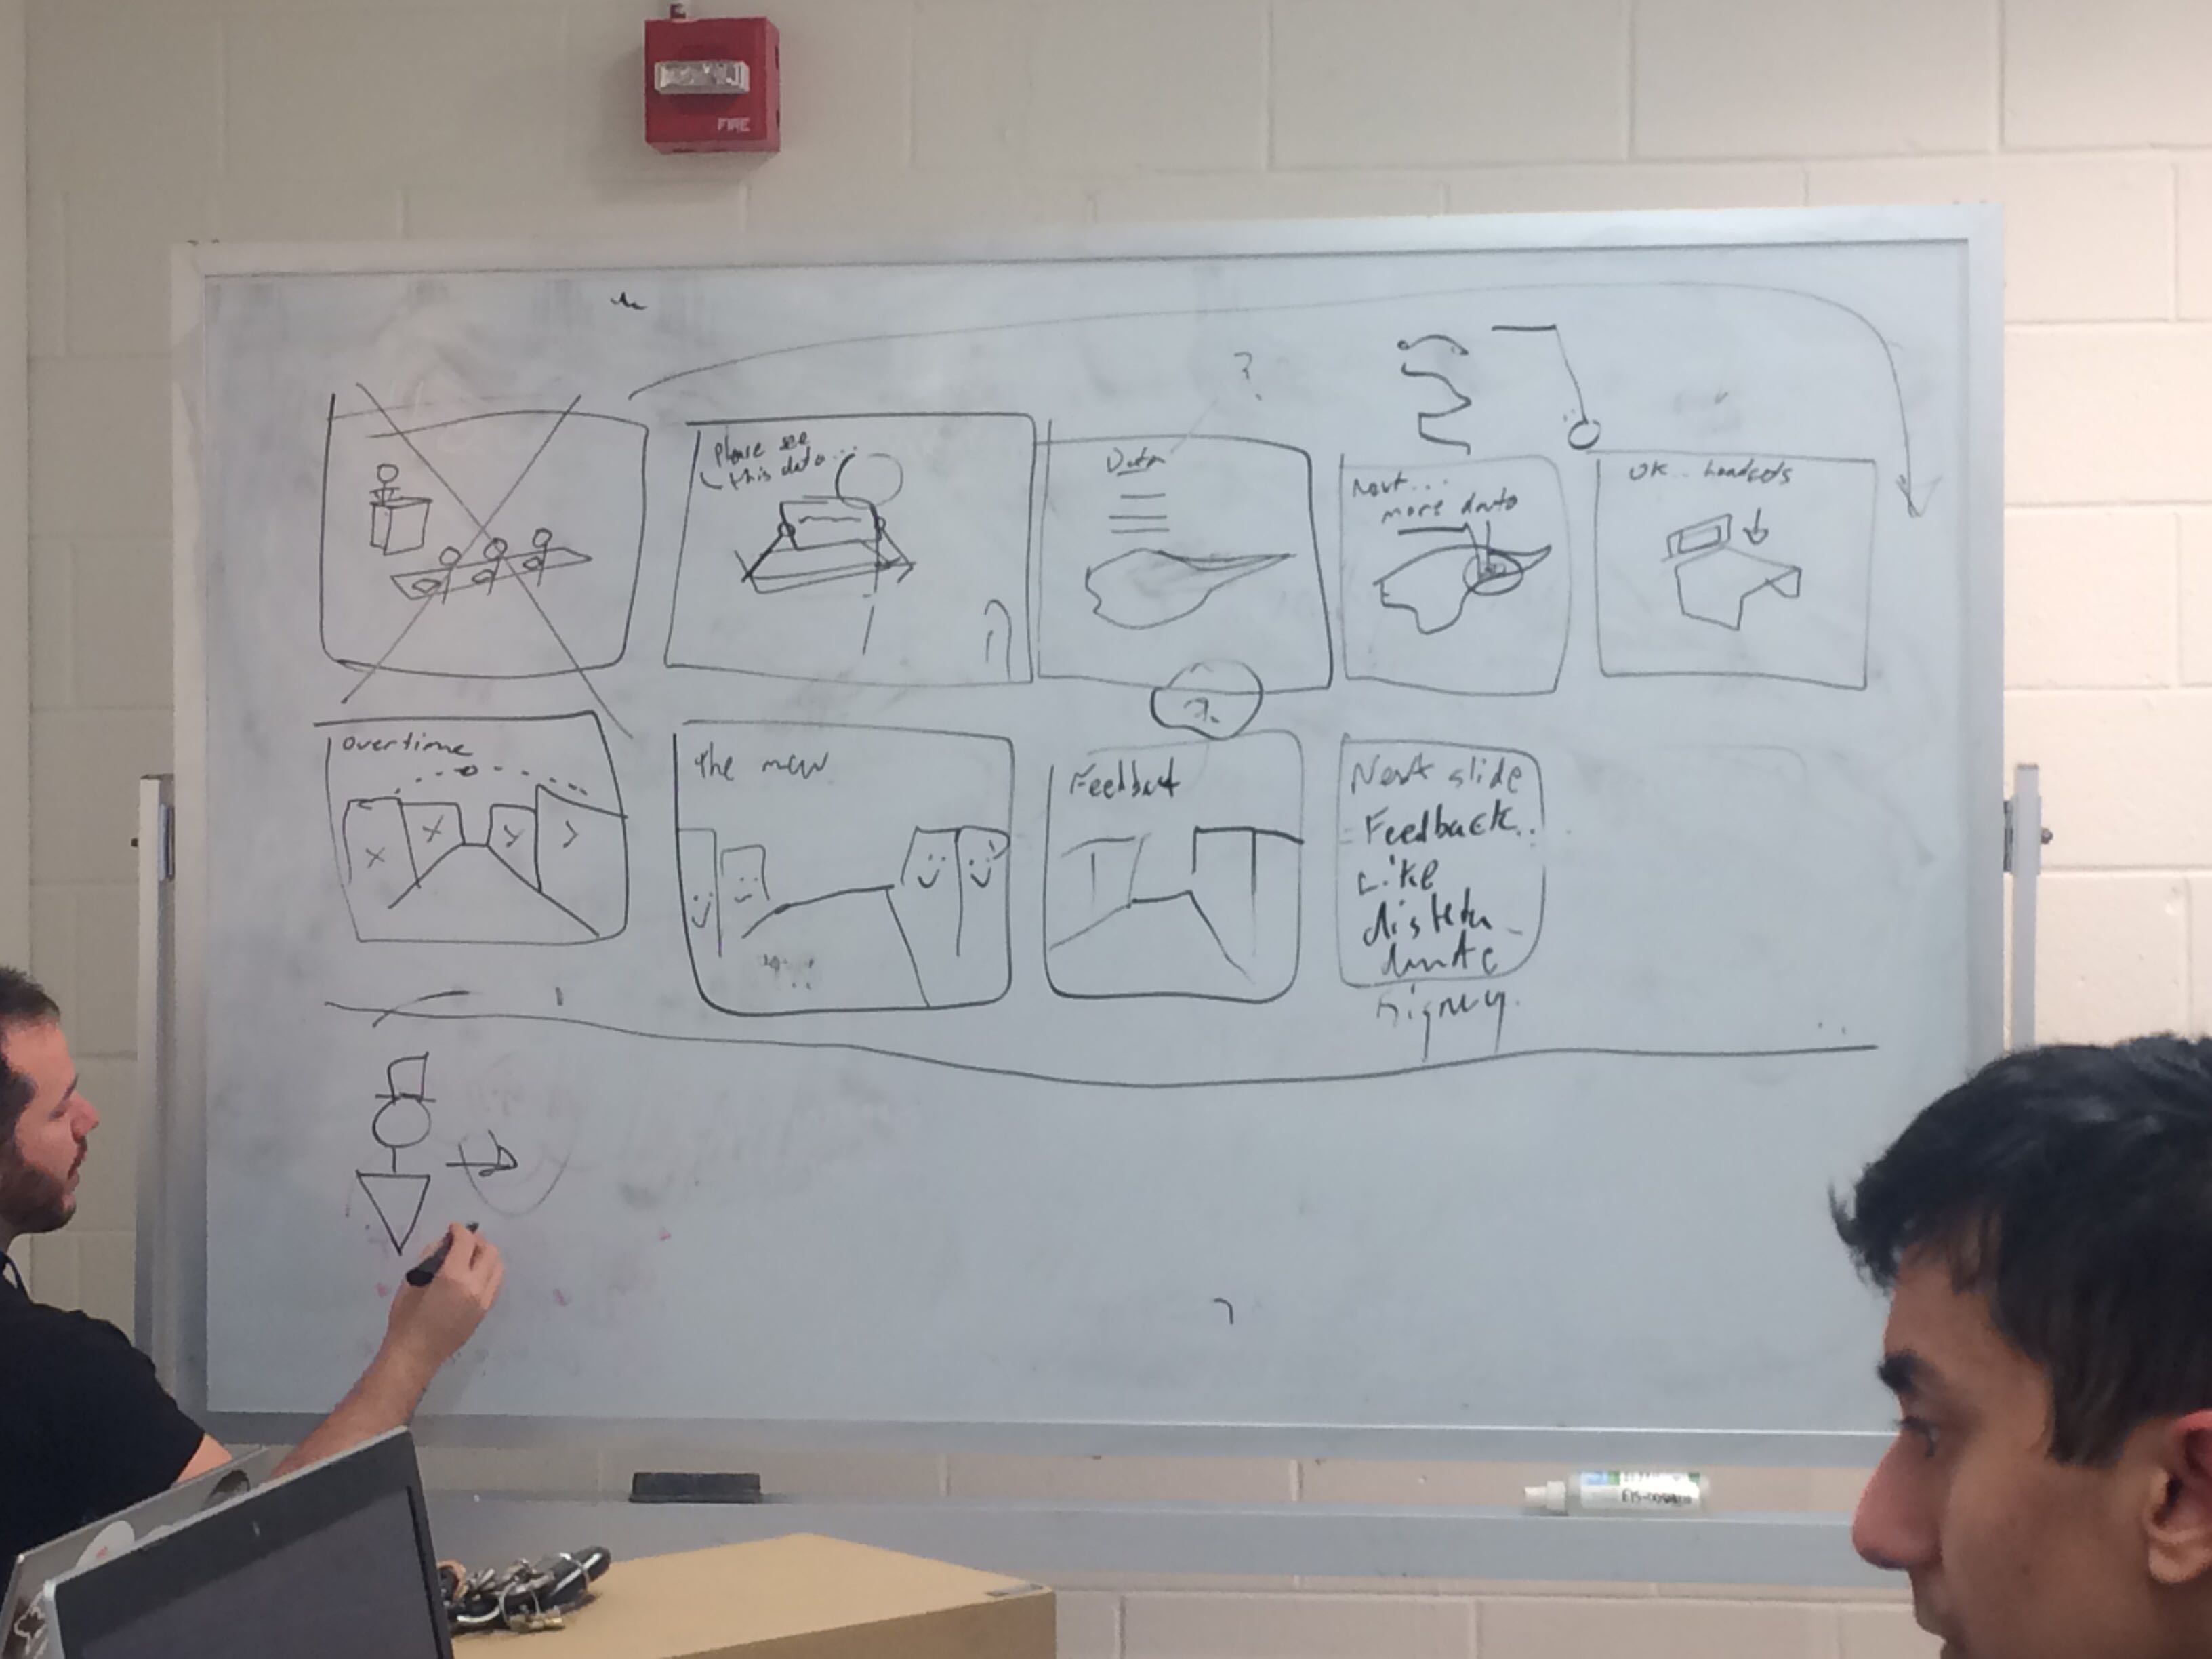 FIRE
?
Please see
this data...
Data
Next...
more data
OK.. headsets
?
overtime
x
x
The new
Feedback
Next slide
Feedback..
Like